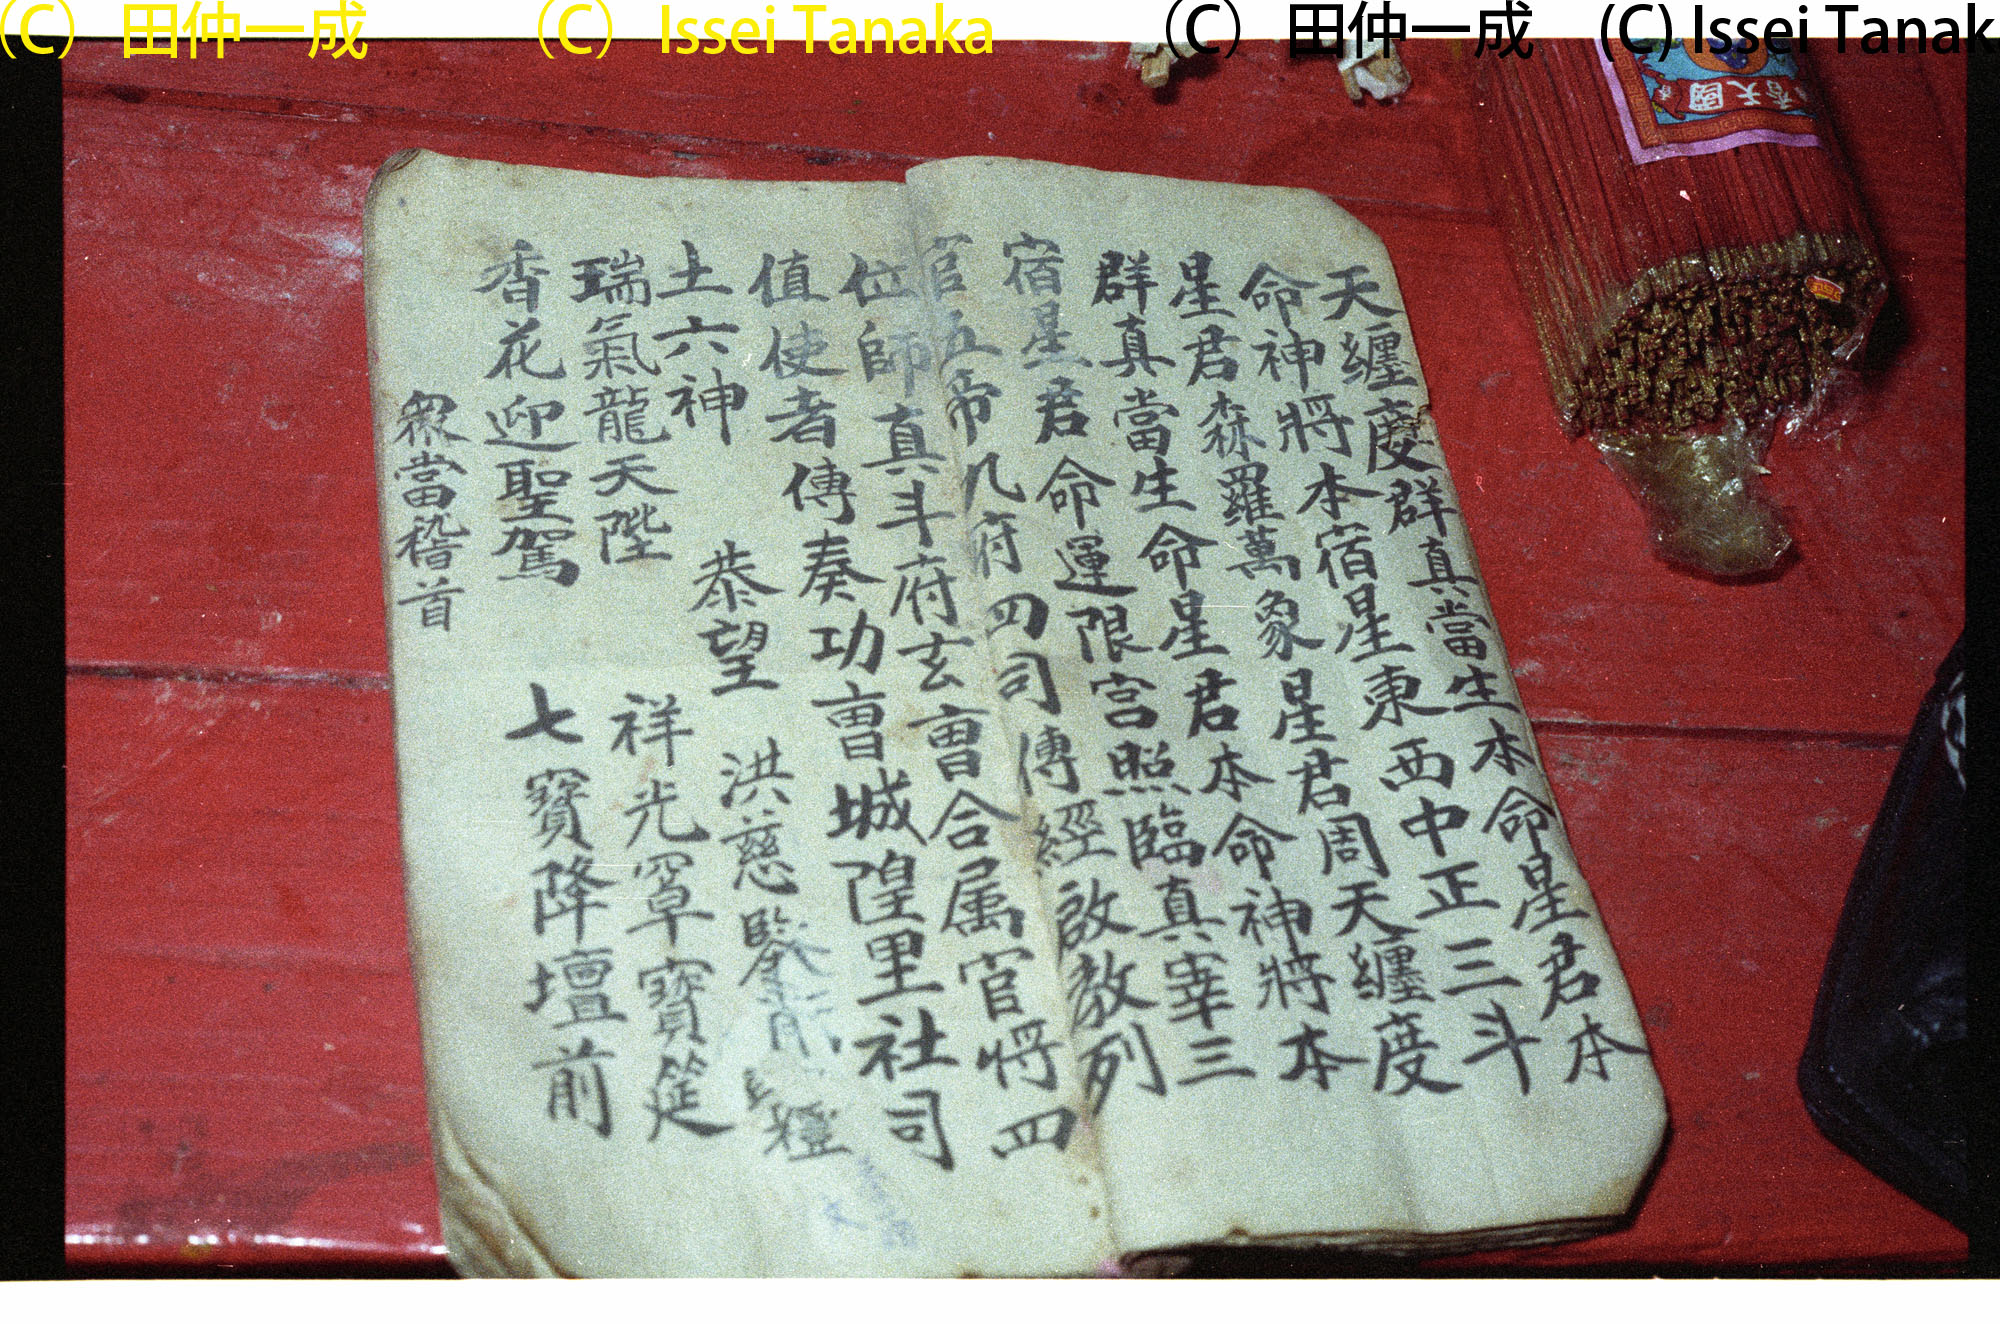 (C) 田仲一成 (C) Issei Tanaka (C) 田仲一成 (C) Issei Tanak
天纏度群真當生本命星君本
命神將本宿星東西中正三斗
星君森羅萬象星君周天纏度
群真當生命星君本命神將本
宿星君命運限宮照臨真宰三
官五帝九府四司傳經啟教列
位師真斗府玄曹合属官將四
值使者傳奏功曹城隍里社司
土六神 恭望 洪慈鑒
瑞氣龍天陛 祥光罩寶筵
香花迎聖駕 七寶降壇前
衆當稽首
國天